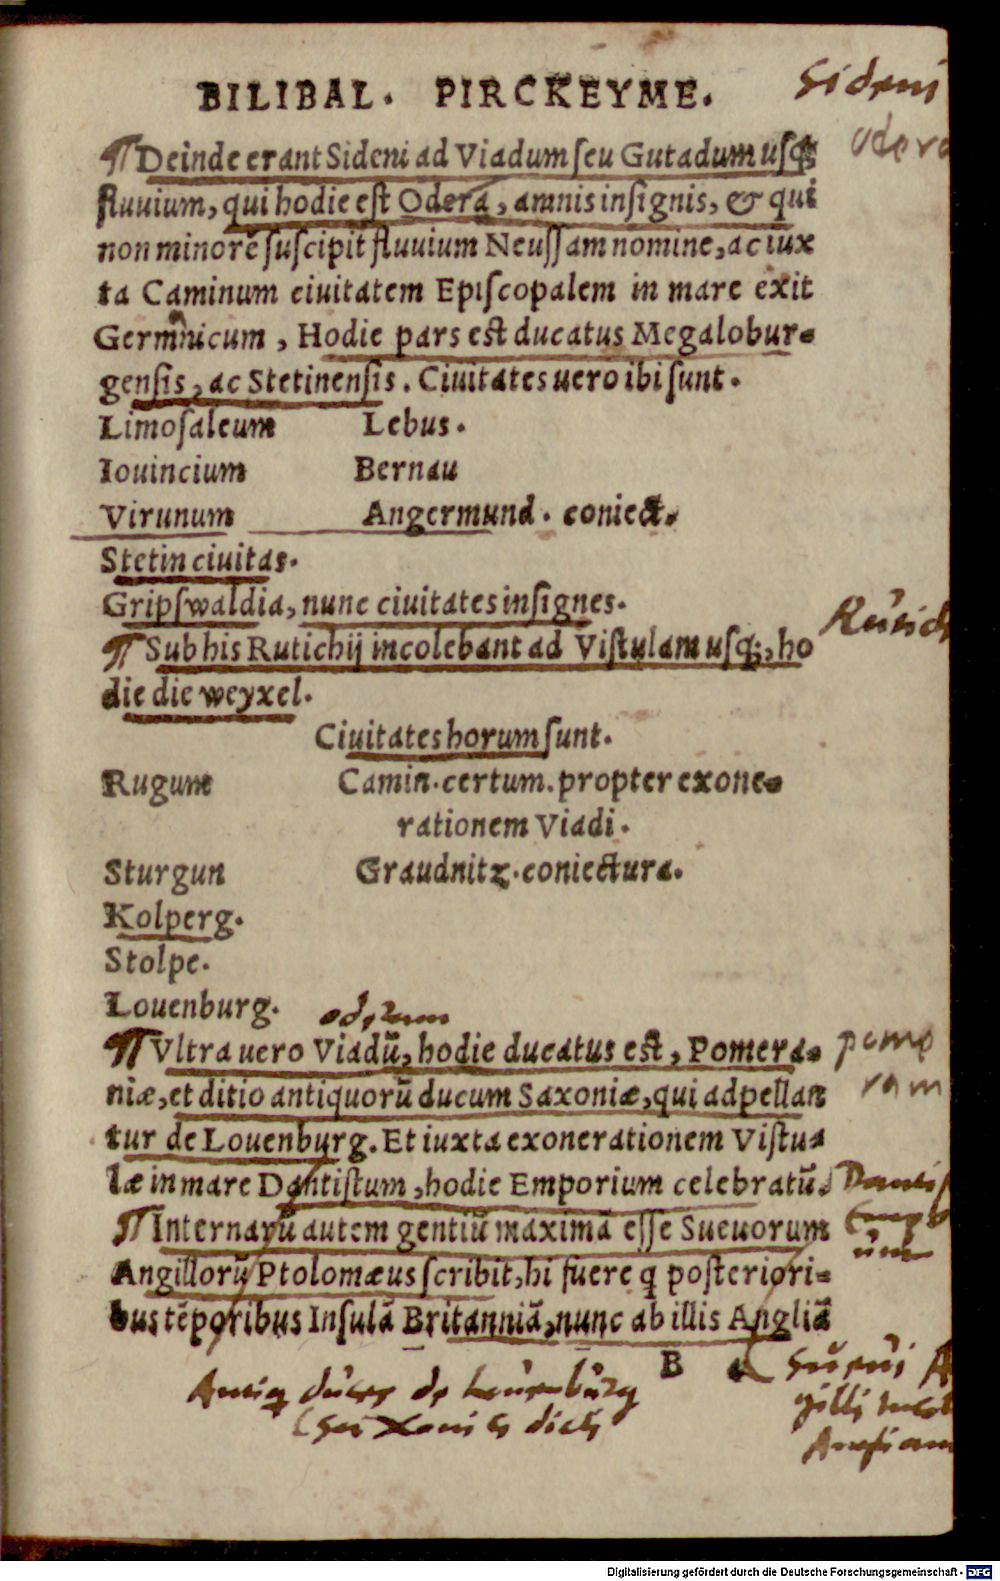 BILIBAL. PIRCKEYME.
Sideni
odera
¶ Deinde erant Sideni ad Viadum ſeu Gutadum uſq;
fluuium, qui hodie eſt Odera, amnis inſignis, & qui
non minorẽ ſuſcipit fluuium Neuſſam nomine, ac iux
ta Caminum ciuitatem Epiſcopalem in mare exit
Germnicum, Hodie pars eſt ducatus Megalobur-
genſis, ac Stetinenſis. Ciuitates uero ibi ſunt.
Limoſaleum Lebus.
Iouincium Bernau
Virunum Angermund. coniect.
Stetin ciuitas.
Gripſwaldia, nunc ciuitates inſignes.
¶ Sub his Rutichij incolebant ad Viſtulam uſq;, ho
die die weyxel.
Ciuitates horum ſunt.
Rugum Camin. certum. propter exone-
rationem Viadi.
Sturgun Graudnitz. coniectura.
Kolperg.
Stolpe.
Louenburg.
¶ Vltra uero Viadũ, hodie ducatus eſt, Pomera-
niæ, et ditio antiquorũ ducum Saxoniæ, qui adpellan
tur de Louenburg. Et iuxta exonerationem Viſtu-
læ in mare Dantiſtum, hodie Emporium celebratũ.
pome
ram
¶ Internarũ autem gentiũ maximã eſſe Sueuorum
Angillorũ Ptolomæus ſcribit, hi fuere q poſteriori-
bus tẽporibus Inſulã Britanniã, nunc ab illis Angliã
B
Antiq duces de Leuenburg